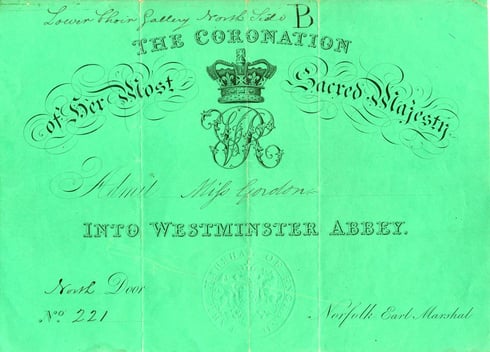 Lower Choir Gallery North Side B
THE CORONATION
of Her Most Sacred Majesty
VR
Admit Miss Gordon
INTO WESTMINSTER ABBEY.
North Door
No. 221
Norfolk Earl Marshal